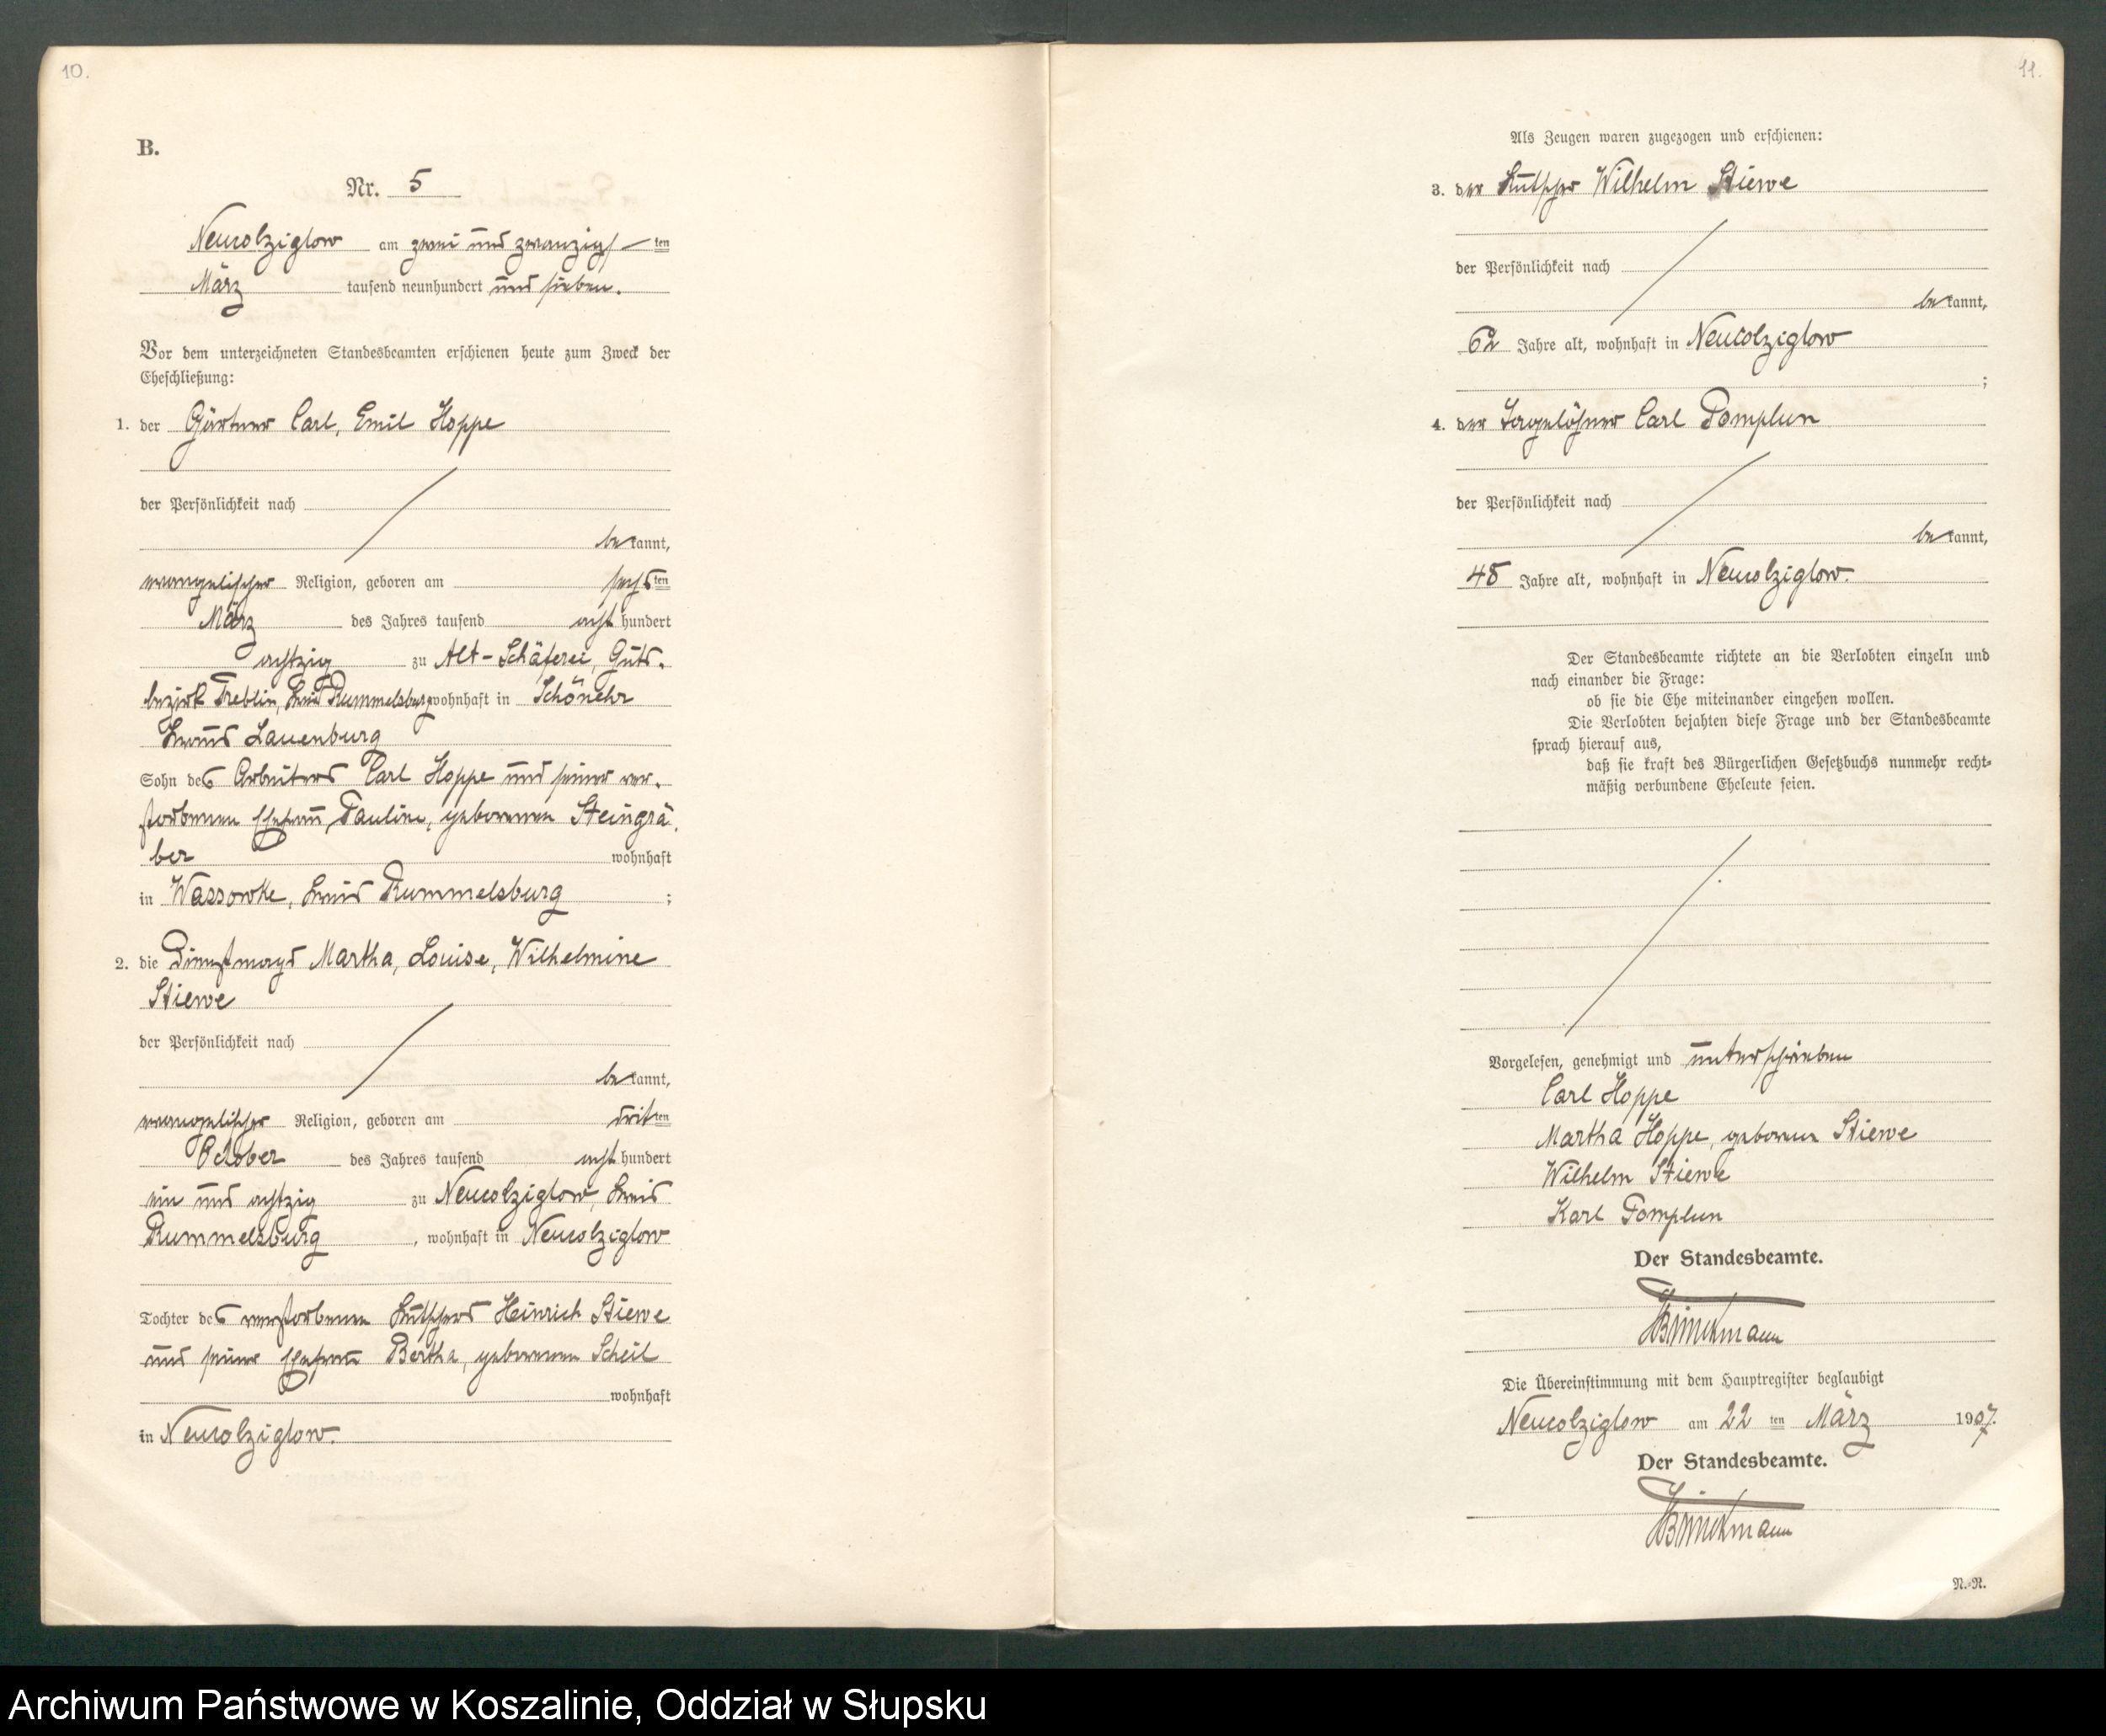 10.
B.
Nr. 5
Neucolziglow am zwei und zwanzigs ten
März tausend neunhundert und sieben.
Vor dem unterzeichneten Standesbeamten erschienen heute zum Zweck der
Eheschließung:
1. der Gärtner Carl, Emil Hoppe
der Persönlichkeit nach
be kannt,
evangelischer Religion, geboren am sechs ten
März des Jahres tausend acht hundert
achtzig zu Alt-Schäferei, Guts-
bezirk Treblin, Kreis Rummelsburg wohnhaft in Schönehr
Kreis Lauenburg
Sohn des Arbeiters Carl Hoppe und seiner ver-
storbenen Ehefrau Pauline, geborenen Steingrä-
ber wohnhaft
in Wassowke, Kreis Rummelsburg ;
2. die Dienstmagd Martha, Louise, Wilhelmine
Stiewe
der Persönlichkeit nach
be kannt,
evangelischer Religion, geboren am drit ten
October des Jahres tausend acht hundert
ein und achtzig zu Neucolziglow, Kreis
Rummelsburg , wohnhaft in Neucolziglow
Tochter des verstorbenen Kutschers Heinrich Stiewe
und seiner Ehefrau Bertha, geborenen Scheil
wohnhaft
in Neucolziglow.
11.
Als Zeugen waren zugezogen und erschienen:
3. der Kutscher Wilhelm Stiewe
der Persönlichkeit nach
be kannt,
62 Jahre alt, wohnhaft in Neucolziglow
;
4. der Tagelöhner Carl Pomplun
der Persönlichkeit nach
be kannt,
48 Jahre alt, wohnhaft in Neucolziglow.
Der Standesbeamte richtete an die Verlobten einzeln und
nach einander die Frage:
ob sie die Ehe miteinander eingehen wollen.
Die Verlobten bejahten diese Frage und der Standesbeamte
sprach hierauf aus,
daß sie kraft des Bürgerlichen Gesetzbuchs nunmehr recht-
mäßig verbundene Eheleute seien.
Vorgelesen, genehmigt und unterschrieben
Carl Hoppe
Martha Hoppe, geborene Stiewe
Wilhelm Stiewe
Karl Pomplun
Der Standesbeamte.
Brinckmann
Die Übereinstimmung mit dem Hauptregister beglaubigt
Neucolziglow am 22 ten März 1907.
Der Standesbeamte.
Brinckmann
N.-N.
Archiwum Państwowe w Koszalinie, Oddział w Słupsku